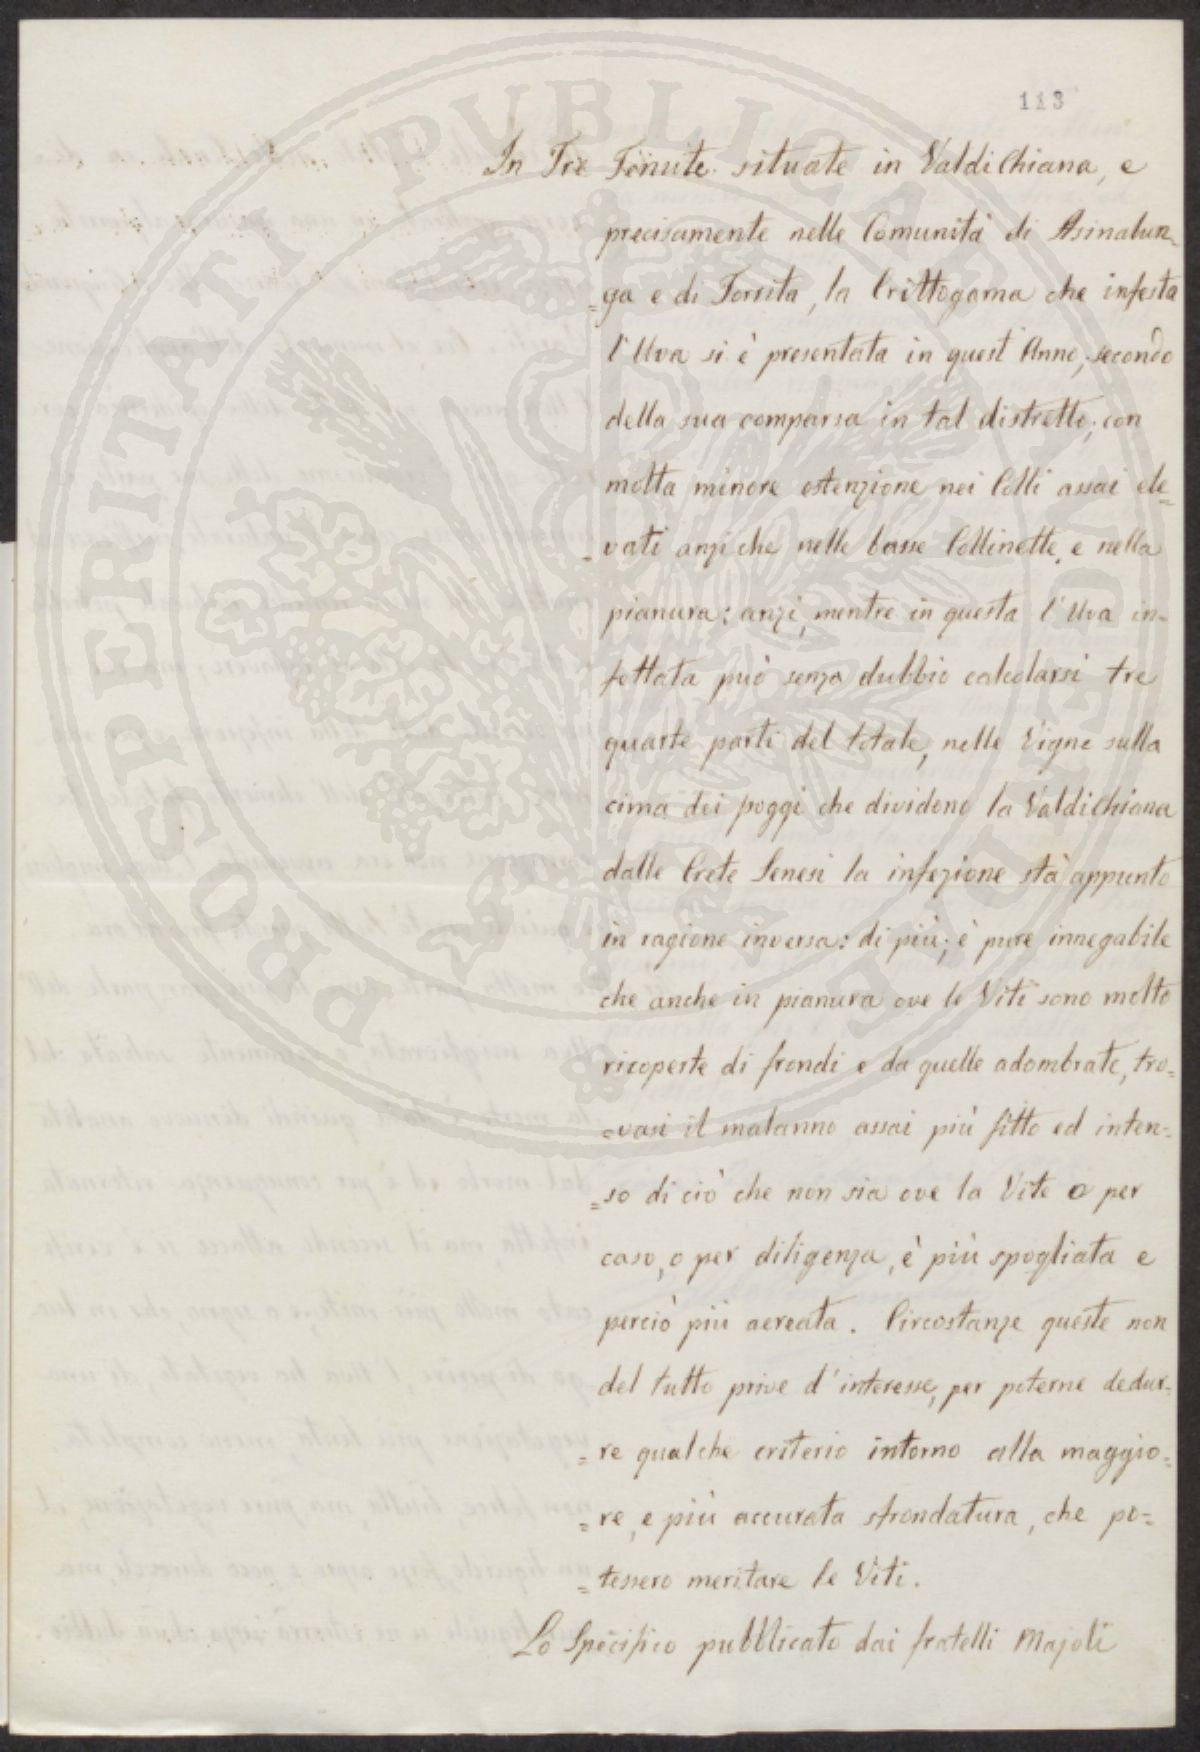 113
In Tre Tenute situate in Valdichiana, e
precisamente nelle Comunità di Asinalun=
=ga e di Torrita, la Crittogama che infesta
l'Uva si è presentata in quest'Anno, secondo
della sua comparsa in tal distretto, con
molta minore estenzione nei Colli assai ele=
=vati anziche nelle basse Collinette, e nella
pianura: anzi, mentre in questa l'Uva in=
fettata può senza dubbio calcolarsi tre
quarte parti del totale, nelle Vigne sulla
cima dei poggi che dividono la Valdichiana
dalle Crete Senesi la infezione stà appunto
in ragione inversa: di più, è pure innegabile
che anche in pianura ove le Viti sono molto
ricoperte di frondi e da quelle adombrate, tro=
=vasi il malanno assai più fitto ed inten=
=so di ciò che non sia ove la Vite o per
caso, o per diligenza, è più spogliata e
perciò più aereata. Circostanze queste non
del tutto prive d'interesse, per poterne dedur=
=re qualche criterio intorno alla maggio=
=re, e più accurata sfrondatura, che po=
=tessero meritare le Viti.
Lo Specifico pubblicato dai fratelli Majoli
PROSPERITATI PUBLICAE AUGENDAE